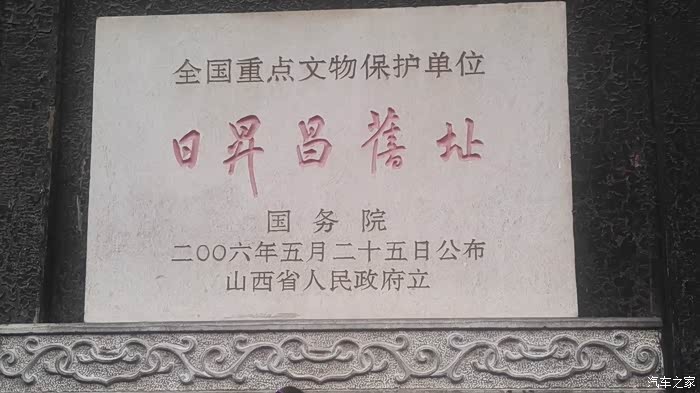 全国重点文物保护单位
日昇昌舊址
国务院
二〇〇六年五月二十五日公布
山西省人民政府立
汽车之家